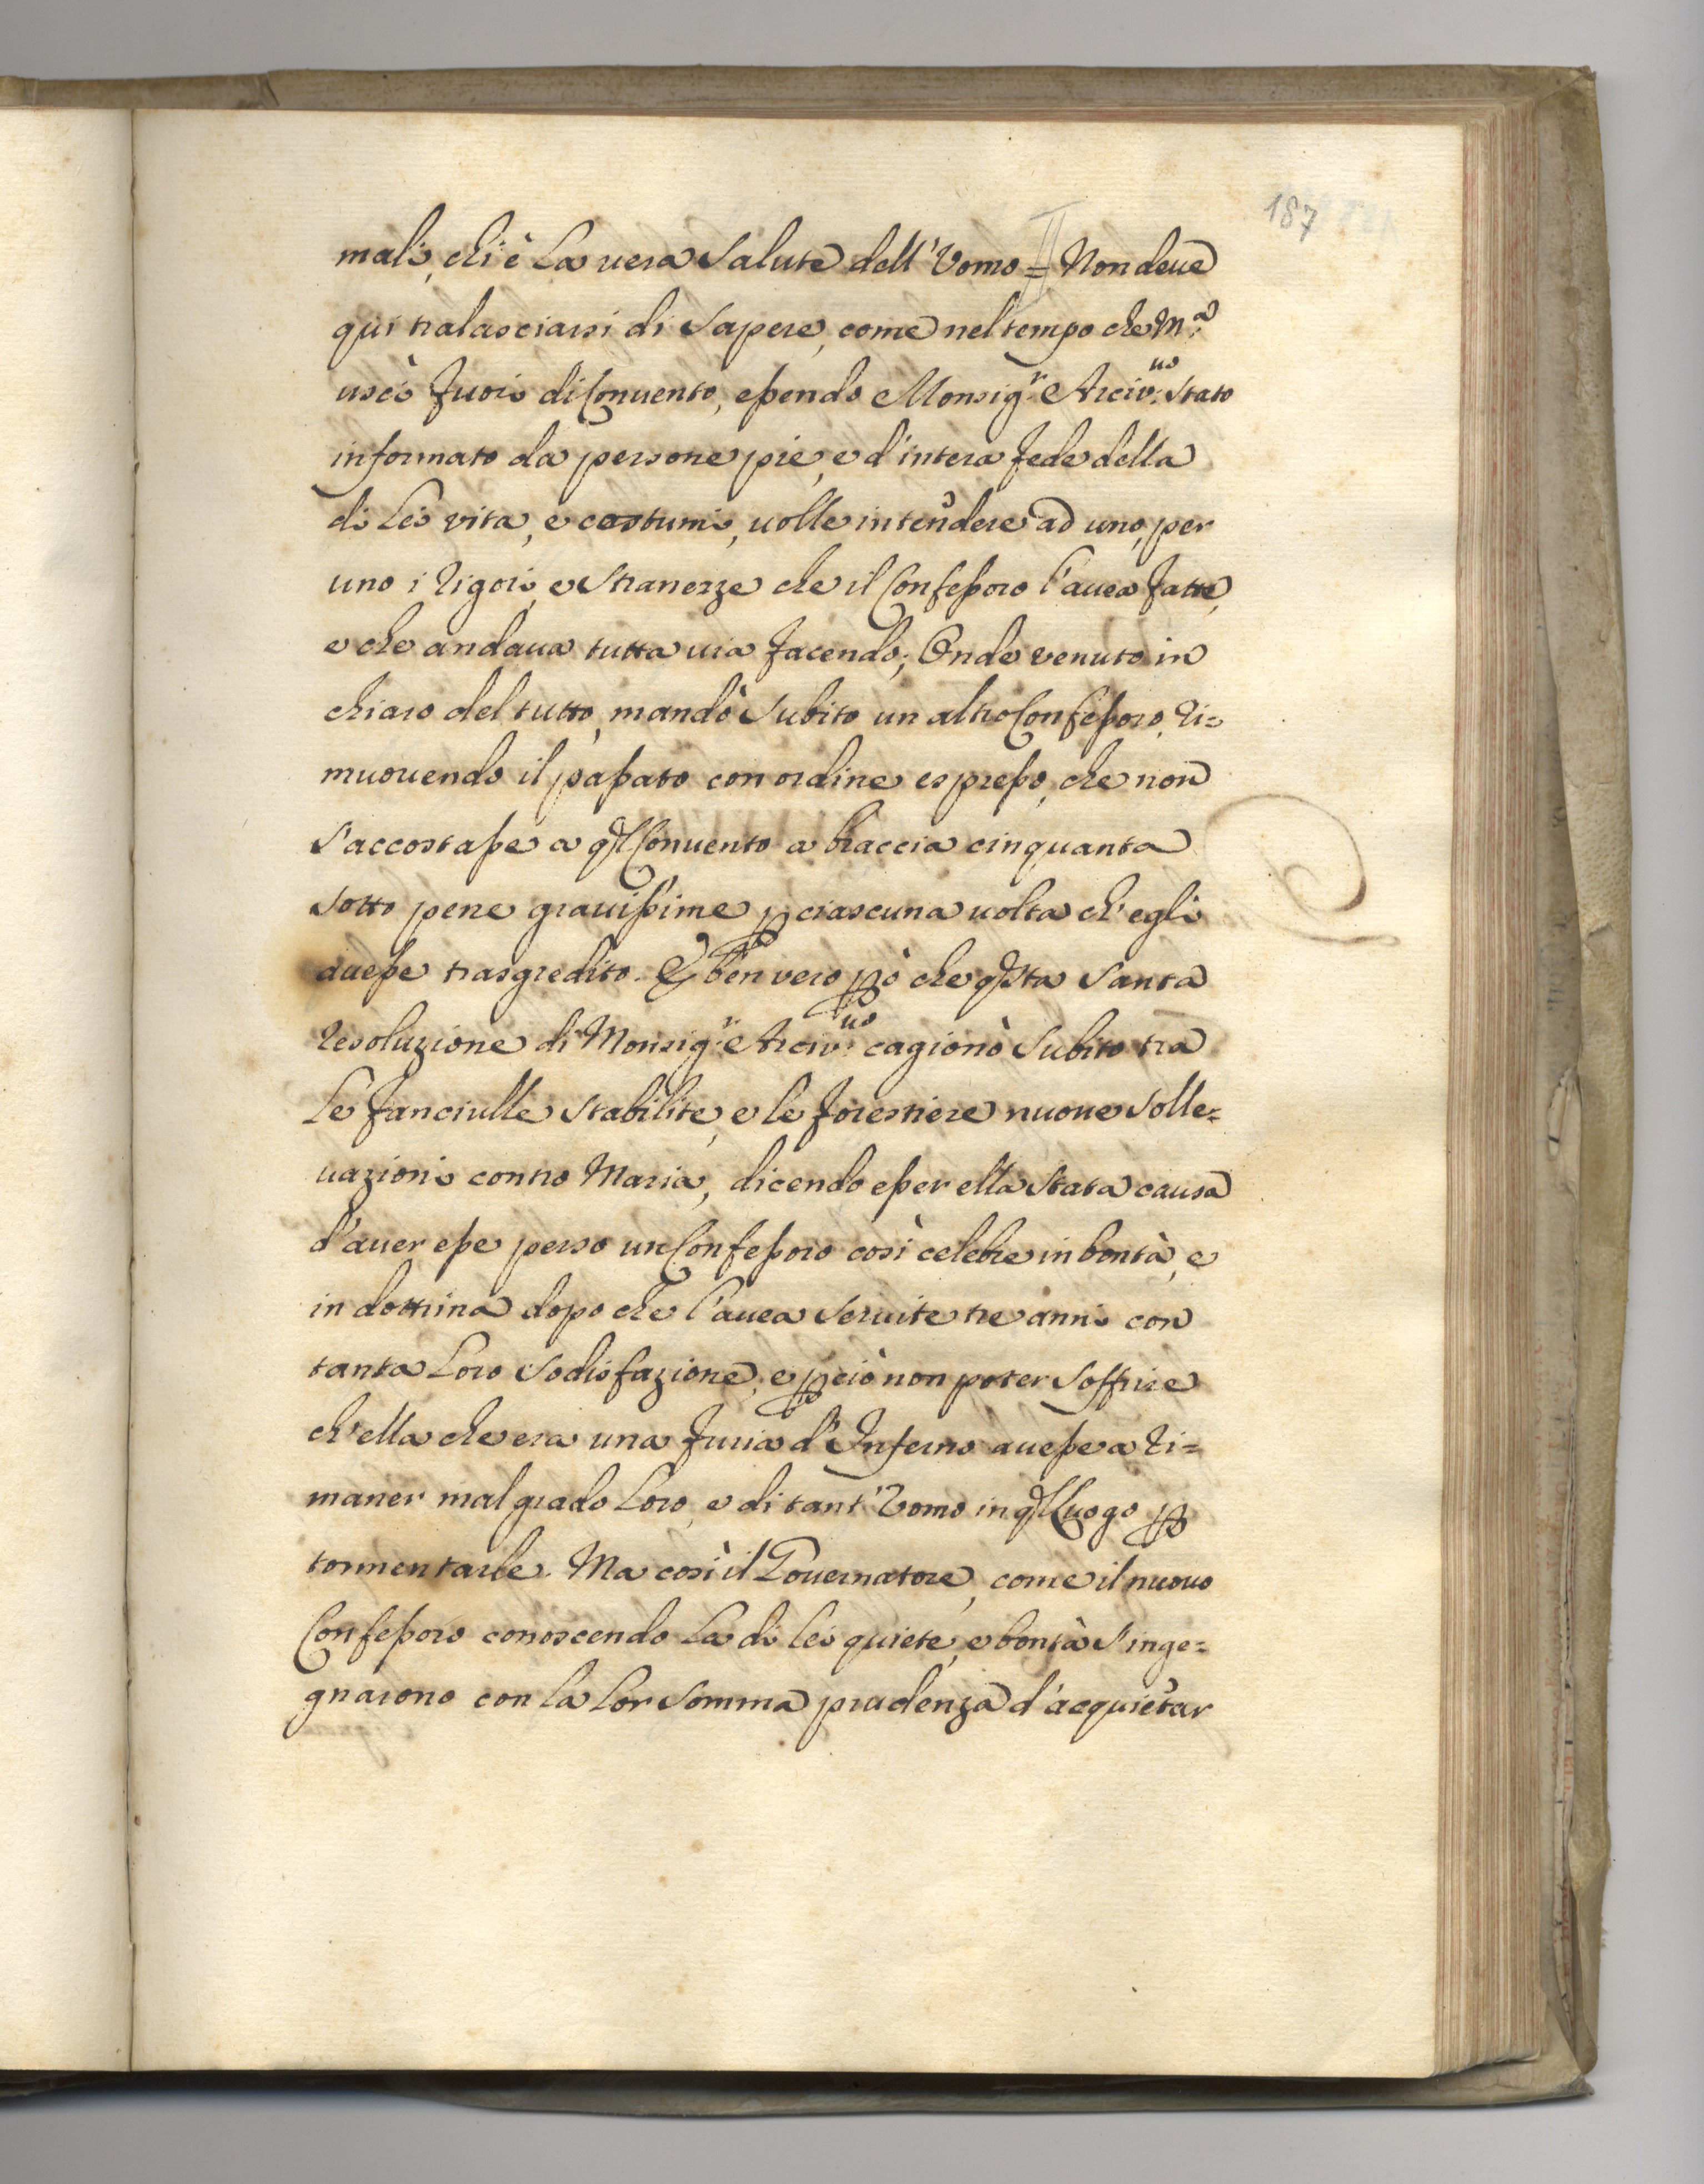 187
mali, chi è la vera salute dell'Uomo = Non deue
qui tralasciarsi di sapere, come nel tempo che M.ª
uscì fuori di Conuento, essendo Monsig.r Arciv.uo stato
informato da persone pie, e d'intera fede della
di Lei vita, e costumi, uolle intendere ad uno, per
uno i rigori, e stranezze che il Confessoro l'auea fatte,
e che andaua tutta uia facendo; Onde venuto in
chiaro del tutto, mandò subito un altro Confessoro, ri=
muouendo il passato con ordine espresso, che non
s'accostasse a ql Conuento a braccia cinquanta
sotto pene grauissime p ciascuna uolta ch'egli
auesse trasgredito. È ben vero pò che qsta santa
resoluzione di Monsig.r Arciv.uo cagionò subito tra
le fanciulle stabilite, e le forestiere nuoue solle=
uazioni contro Maria, dicendo esser ella stata causa
d'auer esse perso un Confessoro così celebre in bontà, e
in dottrina dopo che l'auea seruite tre anni con
tanta loro sodisfazione, e pciò non poter soffrire
ch'ella che era una furia d'Inferno auesse a ri=
maner mal grado loro, e di tant'Uomo in ql luogo p
tormentarle. Ma così il Gouernatore, come il nuouo
Confessoro conoscendo la di lei quiete, e bontà s'inge=
gnarono con la lor somma prudenza d'acquietar